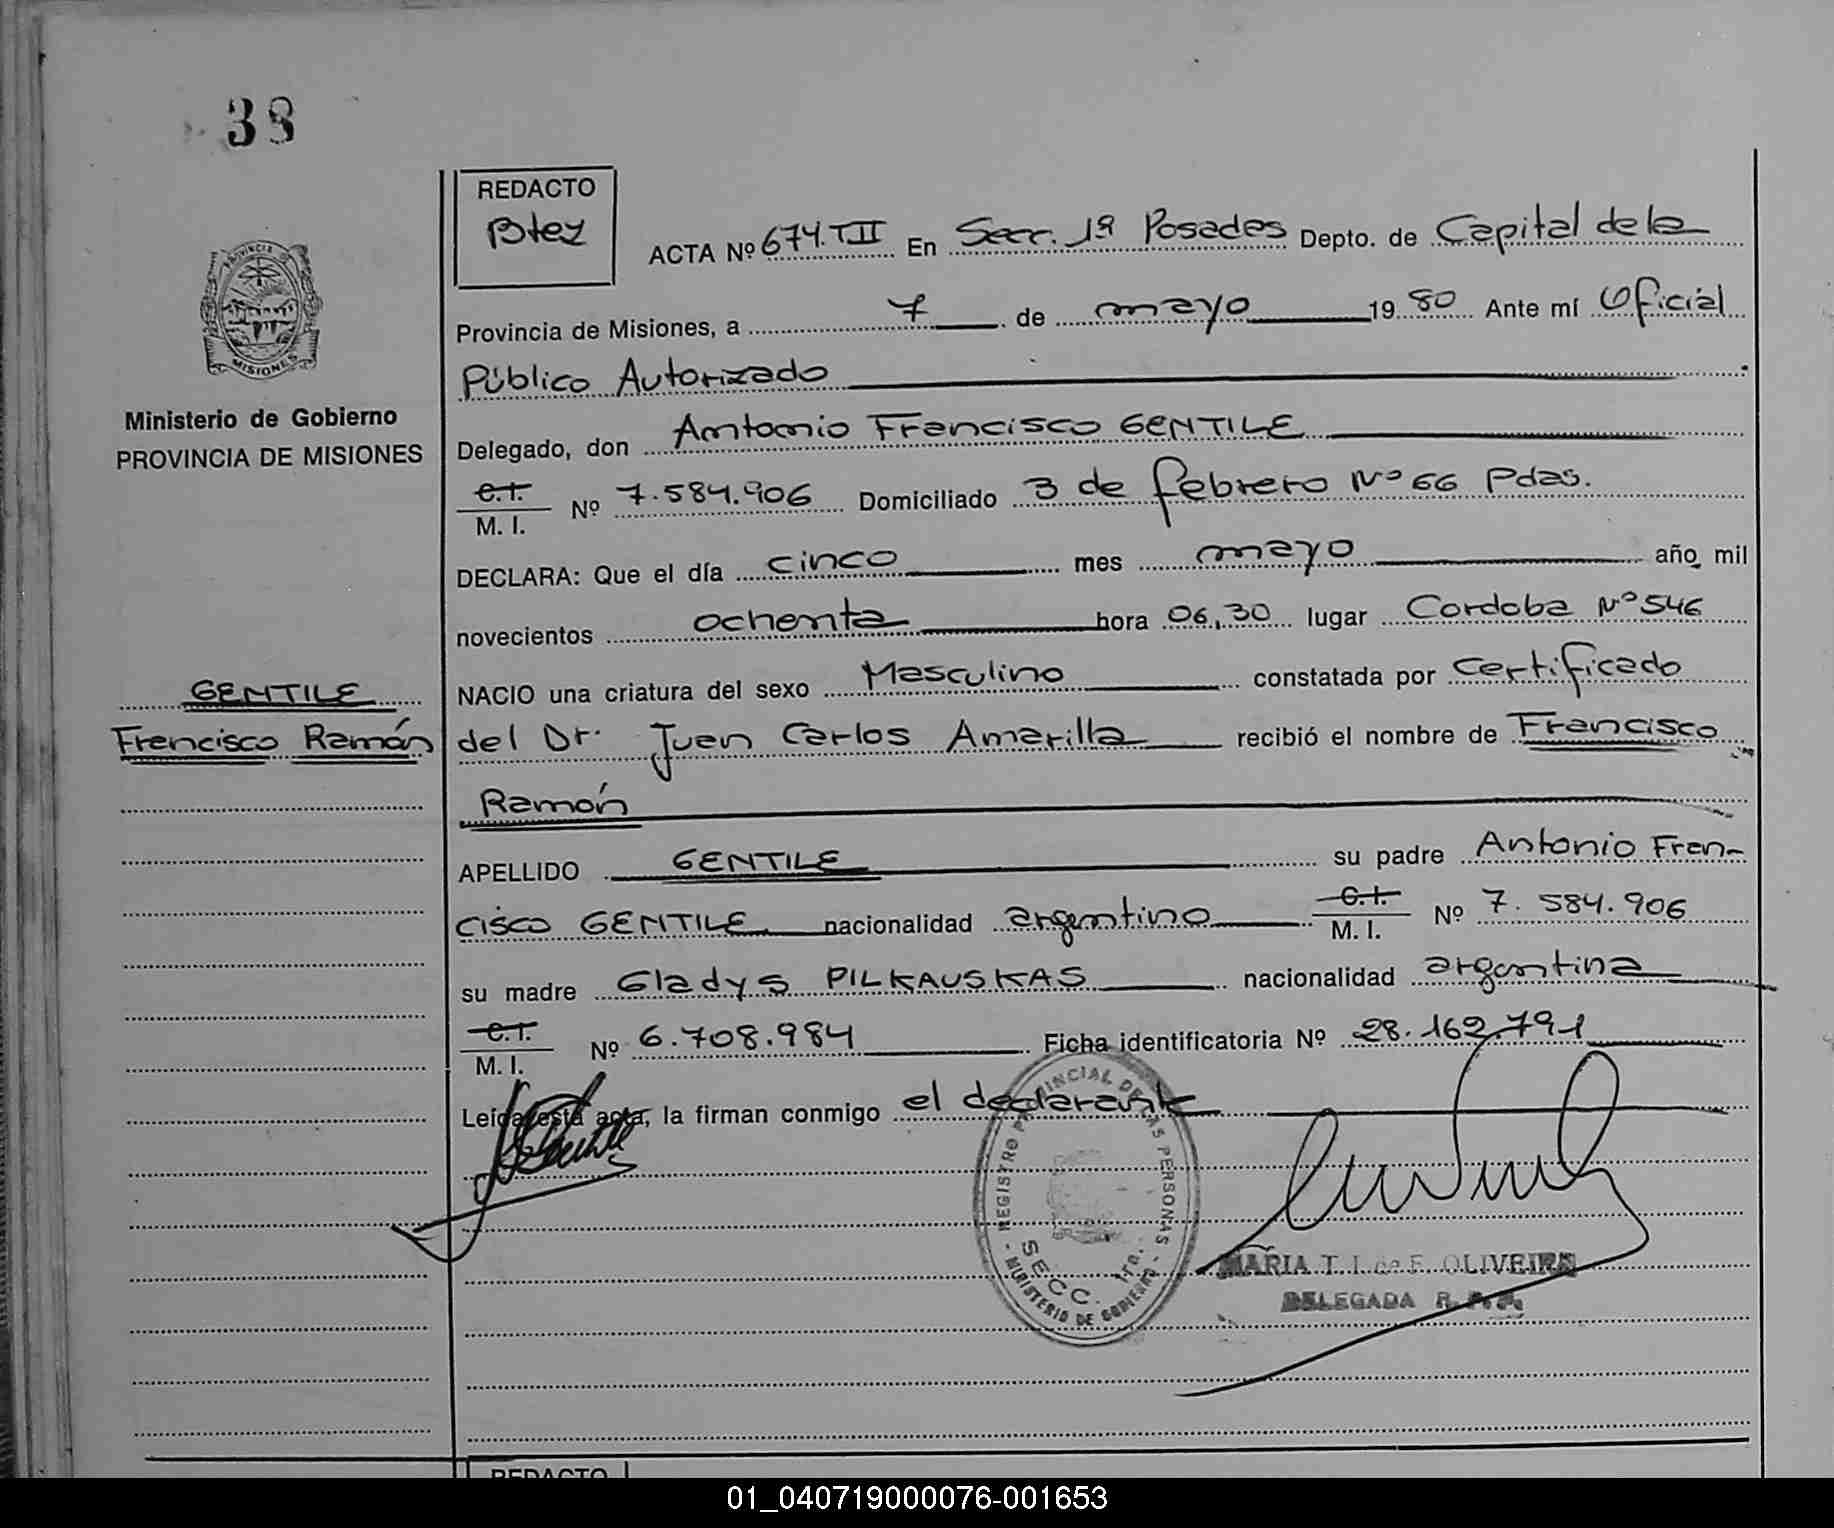 38
REDACTO
Btez
ACTA Nº 674. T II En Secc. 1ª Posadas Depto. de Capital de la
Provincia de Misiones, a 7 de mayo 1980 Ante mí Oficial
Público Autorizado
Ministerio de Gobierno
PROVINCIA DE MISIONES
Delegado, don Antonio Francisco GENTILE
C.I. M. I. Nº 7.584.906 Domiciliado 3 de febrero Nº 66 Pdas.
DECLARA: Que el día cinco mes mayo año mil
novecientos ochenta hora 06,30 lugar Cordoba Nº 546
GENTILE
Francisco Ramón
NACIO una criatura del sexo Masculino constatada por certificado
del Dr. Juan Carlos Amarilla recibió el nombre de Francisco
Ramón
APELLIDO GENTILE su padre Antonio Fran-
cisco GENTILE nacionalidad argentino C.I. M. I. Nº 7.584.906
su madre Gladys PILKAUSKAS nacionalidad argentina
C.I. M. I. Nº 6.708.984 Ficha identificatoria Nº 28.162.791
Leída esta acta, la firman conmigo el declarante
REGISTRO PROVINCIAL DE LAS PERSONAS
SECC. 1ra.
MINISTERIO DE GOBIERNO
MARIA T. I. de F. OLIVEIRA
DELEGADA R. P. P.
REDACTO
01_040719000076-001653